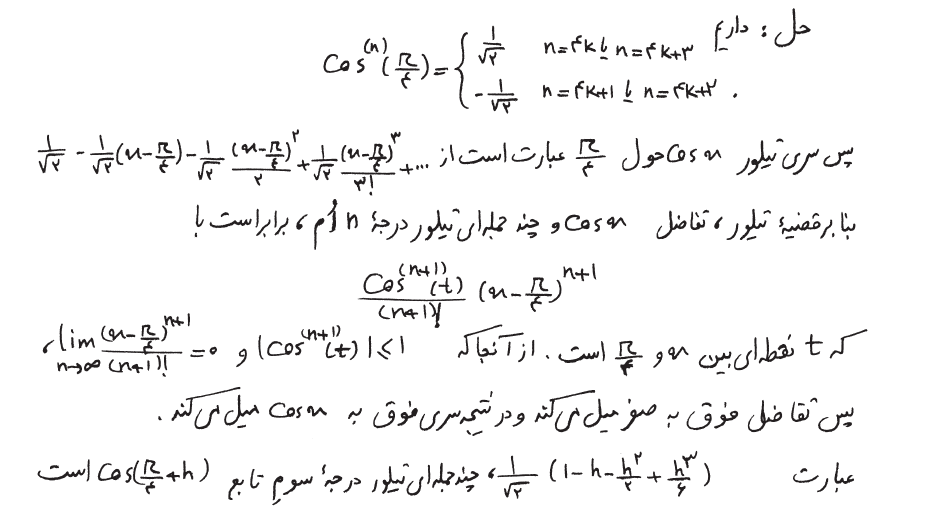 حل : داریم cos⁽ⁿ⁾(π/۴) = { ۱/√۲ n=۴k یا n=۴k+۳
-۱/√۲ n=۴k+۱ یا n=۴k+۲ .
پس سری تیلور cos x حول π/۴ عبارت است از ۱/√۲ - ۱/√۲(x-π/۴) - ۱/√۲ (x-π/۴)²/۲ + ۱/√۲ (x-π/۴)³/۳! + ...
بنا بر قضیهٔ تیلور، تفاضل cos x و چند جمله‌ای تیلور درجهٔ n اُم، برابر است با
cos⁽ⁿ⁺¹⁾(t)/(n+1)! (x-π/۴)ⁿ⁺¹
که t نقطه‌ای بین x و π/۴ است. از آنجا که |cos⁽ⁿ⁺¹⁾(t)|≤1 و lim n→∞ (x-π/۴)ⁿ⁺¹/(n+1)! = ۰،
پس تفاضل فوق به صفر میل می‌کند و در نتیجه سری فوق به cos x میل می‌کند.
عبارت ۱/√۲ (1-h-h²/۲+h³/۶)، چندجمله‌ای تیلور درجهٔ سوم تابع cos(π/۴+h) است